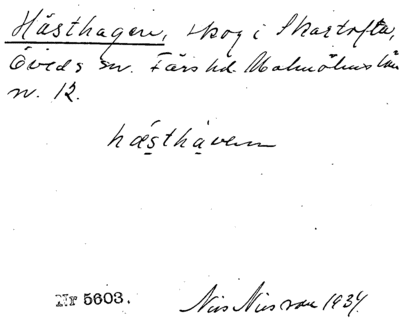 Hästhagen, skog i Skartofta,
Öveds sn. Färs hd. Malmöhus län
n. 12.
hæsthàven
Nr 5603.
Nils Nilsson 1934.